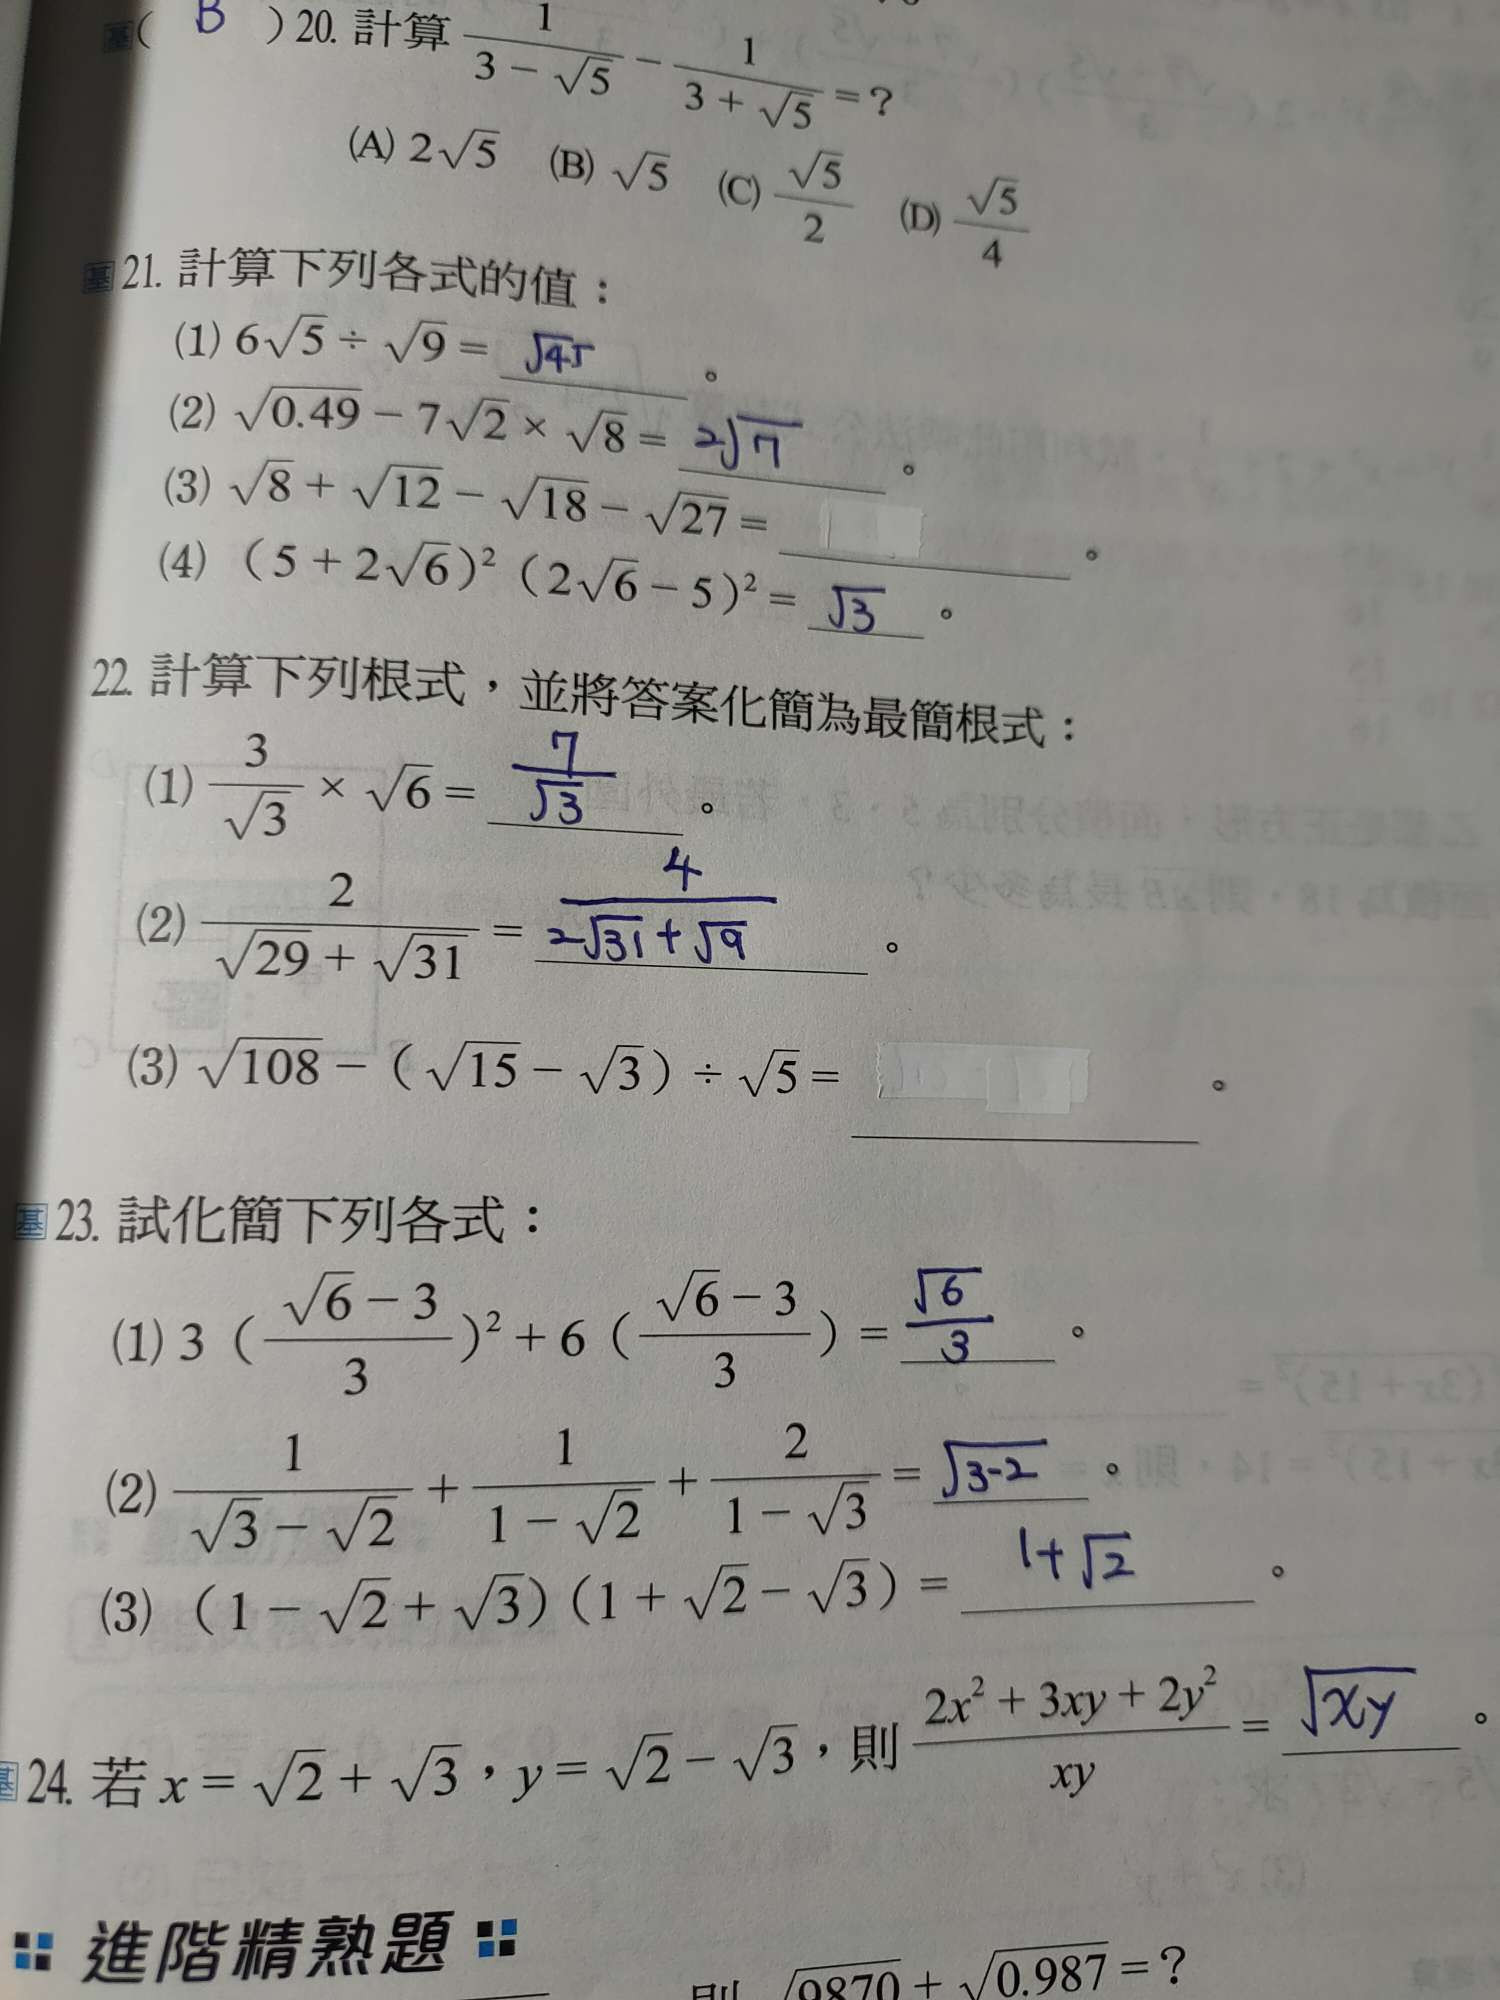 基( B )20. 計算 1/(3 − √5) − 1/(3 + √5) = ?
(A) 2√5 (B) √5 (C) √5/2 (D) √5/4
基21. 計算下列各式的值：
(1) 6√5 ÷ √9 = √45 。
(2) √0.49 − 7√2 × √8 = 2√7 。
(3) √8 + √12 − √18 − √27 = 。
(4) （5 + 2√6）²（2√6 − 5）² = √3 。
22. 計算下列根式，並將答案化簡為最簡根式：
(1) 3/√3 × √6 = 7/√3 。
(2) 2/(√29 + √31) = 4/(2√31 + √9) 。
(3) √108 −（√15 − √3）÷ √5 = 。
基23. 試化簡下列各式：
(1) 3（(√6 − 3)/3）² + 6（(√6 − 3)/3）= √6/3 。
(2) 1/(√3 − √2) + 1/(1 − √2) + 2/(1 − √3) = √3-2 。
(3) （1 − √2 + √3）（1 + √2 − √3）= 1+√2 。
基24. 若 x = √2 + √3，y = √2 − √3，則 (2x² + 3xy + 2y²)/xy = √xy 。
進階精熟題
則 √9870 + √0.987 = ?